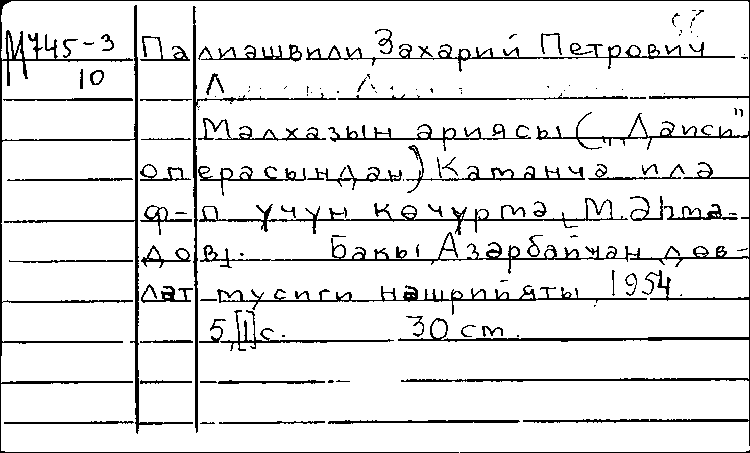 М745-3 Палиашвили, Захарий Петрович
10
Малхазын ариясы („Даиси"
операсындан) Каманча илə
ф-п үчүн көчүрмə [М. Əһмə-
дов]. Бакы, Азəрбайҹан дөв-
лəт мусиги нəшрийяты, 1954.
5,[1]с. 30 cm.